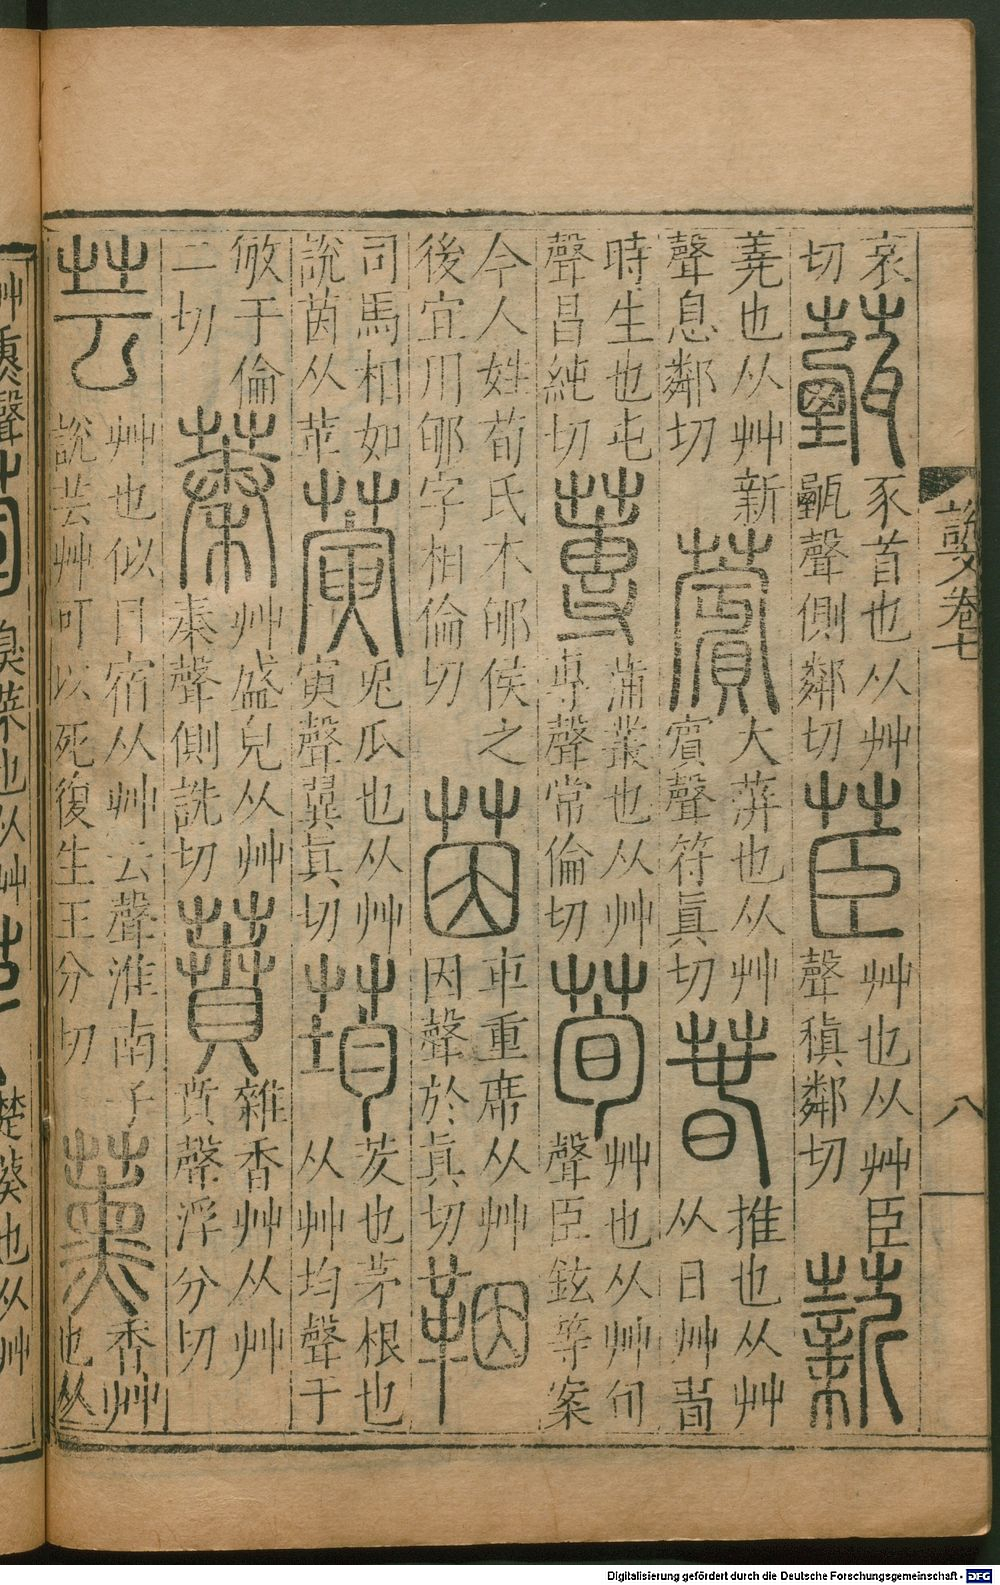 說文卷七
八
衺
切
薽
豕首也从艸
甄聲側鄰切
茞
艸也从艸臣
聲稹鄰切
薪
蕘也从艸新
聲息鄰切
薲
大蓱也从艸
賓聲符真切
萅
推也从艸
从日艸萅
時生也屯
聲昌純切
蓴
蒲叢也从艸
專聲常倫切
荀
艸也从艸旬
聲臣鉉等案
今人姓荀氏木郇侯之
後宜用郇字相倫切
茵
車重席从艸
因聲於真切
鞇
司馬相如
說茵从革
蔩
兎瓜也从艸
寅聲翼真切
荺
茇也茅根也
从艸均聲于
敏于倫
二切
蓁
艸盛皃从艸
秦聲側詵切
蕡
雜香艸从艸
賁聲浮分切
芸
艸也似目宿从艸云聲淮南子
說芸艸可以死復生王分切
薰
香艸
也从
艸熏聲
葷
臭菜也从艸
楚葵也从艸
Digitalisierung gefördert durch die Deutsche Forschungsgemeinschaft - DFG